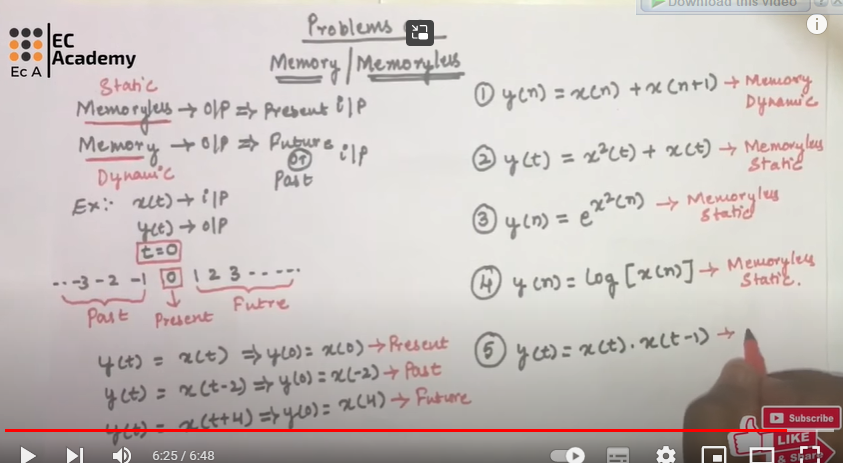 Download this video
Problems
EC
Academy
Ec A
Memory/Memoryless
Static
Memoryless → O|P ⇒ Present i|P
Memory → O|P ⇒ Future
or i|P
Past
Dynamic
Ex:- x(t) → i|P
y(t) → O|P
t=0
-- -3 -2 -1 0 1 2 3 -- -- --
Past Present Futre
y(t) = x(t) ⇒ y(0) = x(0) → Present
y(t) = x(t-2) ⇒ y(0) = x(-2) → Past
y(t) = x(t+4) ⇒ y(0) = x(4) → Future
① y(n) = x(n) + x(n+1) → Memory
Dynamic
② y(t) = x²(t) + x(t) → Memoryless
Static
③ y(n) = e^{x²(n)} → Memoryless
Static
④ y(n) = log [x(n)] → Memoryless
Static.
⑤ y(t) = x(t) . x(t-1) →
Subscribe
LIKE
& Share
6:25 / 6:48